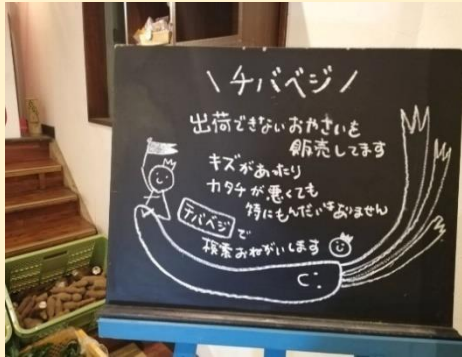 \ チバベジ /
出荷できないおやさいを
販売してます
キズがあったり
カタチが悪くても
特にもんだいはありません
チバベジで
検索おねがいします